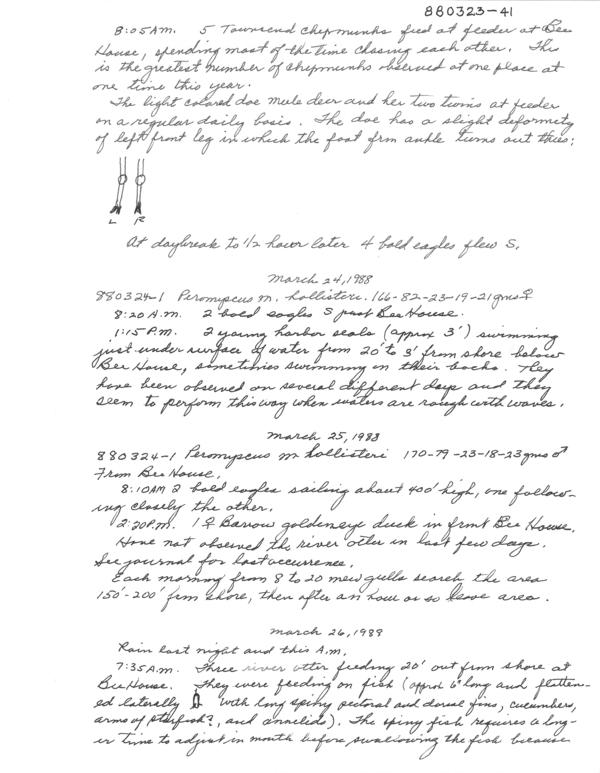 880323-41
8:05 A.M. 5 Townsend chipmunks fied at feeder at Bee
House, spending most of the time chasing each other. This
is the greatest number of chipmunks observed at one place at
one time this year.
The light colored doe mule deer and her two twins at feeder
on a regular daily basis. The doe has a slight deformity
of left front leg in which the foot frm ankle turns out thus:
L R
At daybreak to 1/2 hour later 4 bald eagles flew S.
March 24, 1988
880324-1 Peromyscus m. hollisteri. 166-82-23-19-21gms♀
8:20 A.M. 2 bald eagles S past Bee House.
1:15 P.M. 2 young harbor seals (approx 3') swimming
just under surface of water from 20' to 3' from shore below
Bee House, sometimes swimming on their backs. They
have been observed on several different days and they
seem to perform this way when waters are rough with waves.
March 25, 1988
880324-1 Peromyscus m hollisteri 170-79-23-18-23gms♂
From Bee House.
8:10AM 2 bald eagles sailing about 400' high, one follow-
ing closely the other.
2:20P.M. 1♀ Barrow goldeneye duck in front Bee House.
Have not observed the river otter in last few days.
See journal for last occurrence.
Each morning from 8 to 20 mew gulls search the area
150'-200' from shore, then after an hour or so leave area.
March 26, 1988
Rain last night and this A.M.
7:35 A.M. Three river otter feeding 20' out from shore at
Bee House. They were feeding on fish (approx 6" long and flatten-
ed laterally with long spiny pectoral and dorsal fins, cucumbers,
arms of starfish?, and annelids). The spiny fish requires a long-
er time to adjust in mouth before swallowing the fish because